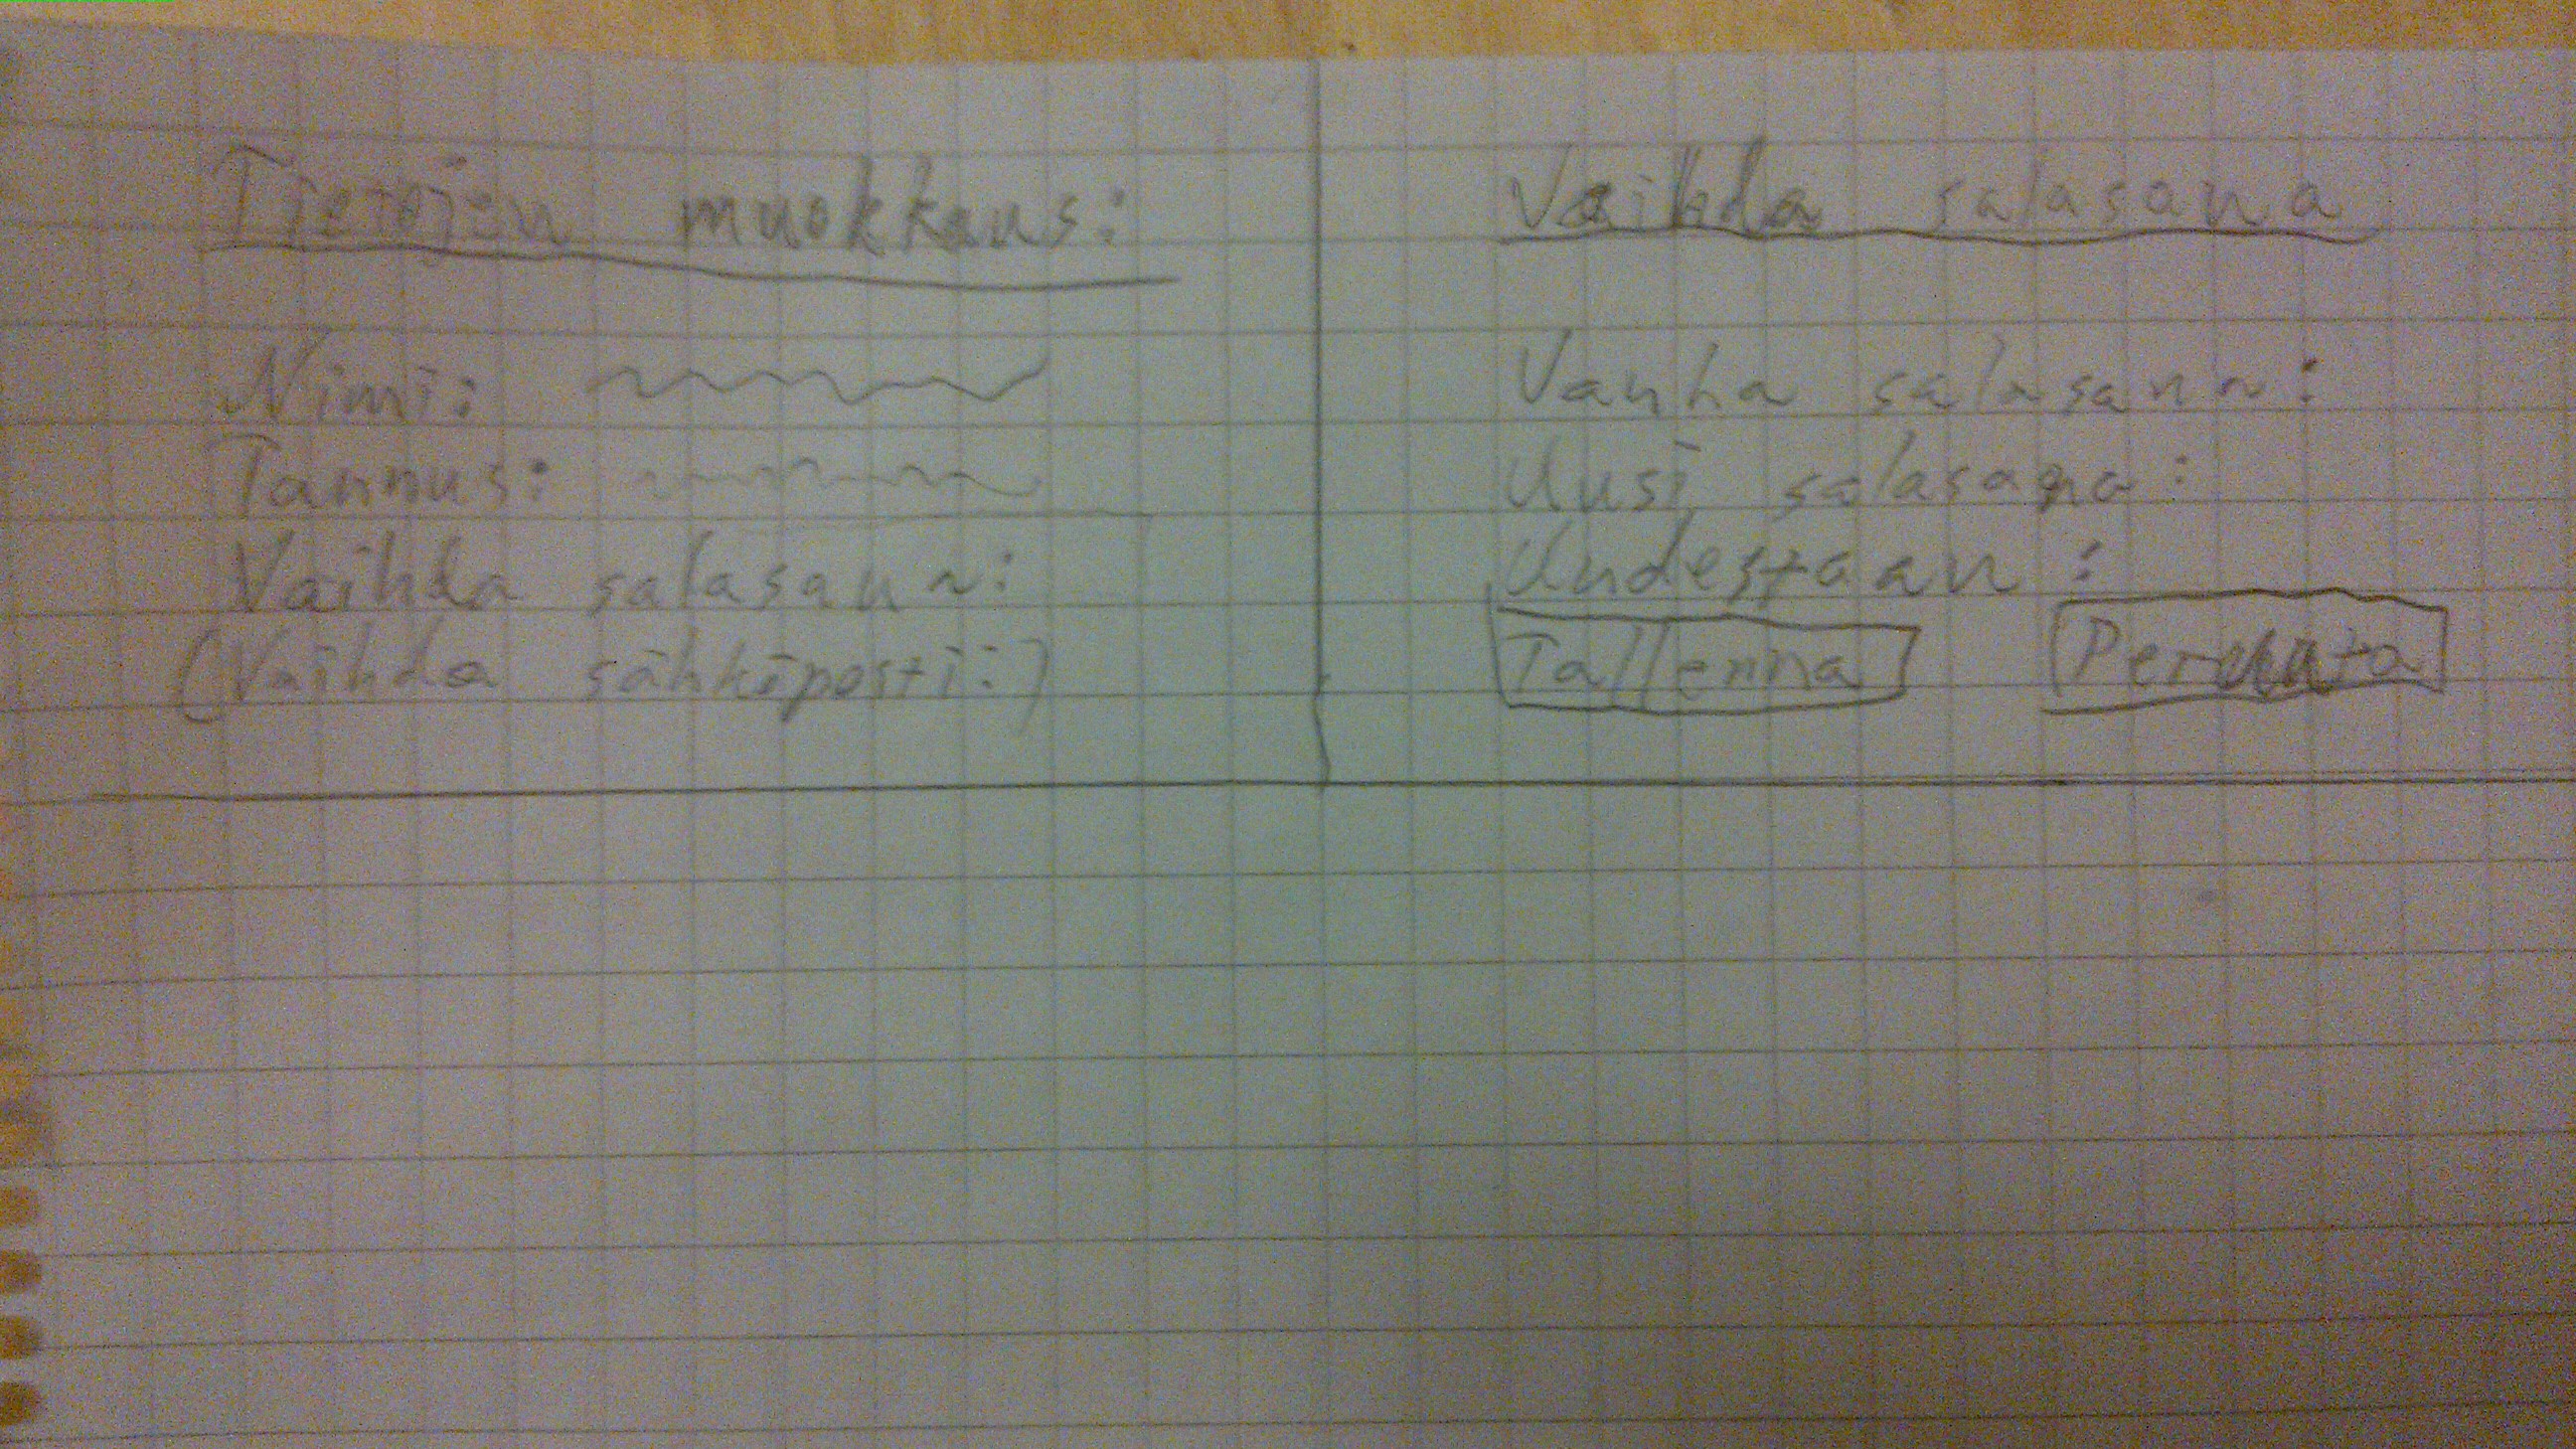 Tietojen muokkaus:
Nimi:
Tunnus:
Vaihda salasana:
(Vaihda sähköposti:)
Vaihda salasana
Vanha salasana:
Uusi salasana:
Uudestaan:
Tallenna
Peruuta